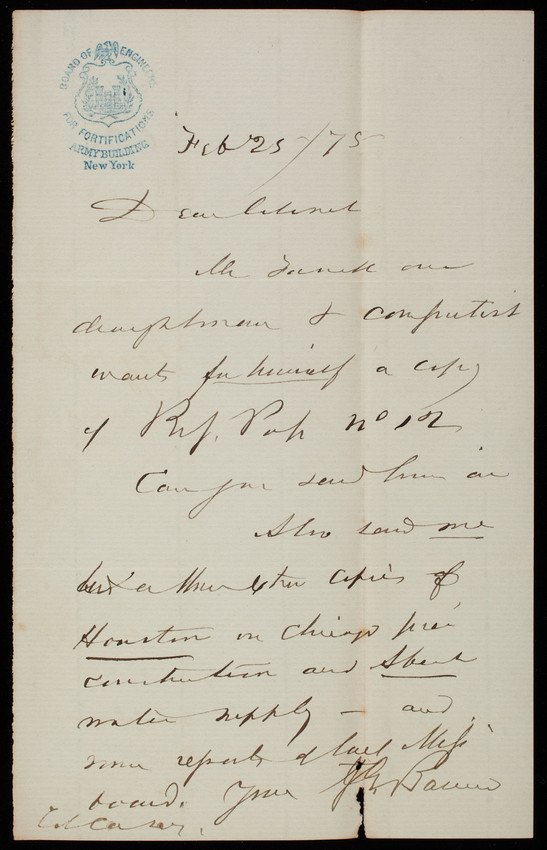 BOARD OF ENGINEERS
FOR FORTIFICATIONS
ARMY BUILDING
New York
Feb 25/75
Dear Colonel
Mr our
draughtsman & computist
wants for himself a copy
of Prof. Pap No 12
Can you send him one
Also send me
three copies of
Houston on Chicago
construction and
water supply — and
some reports of Miss
board. Yours JG Barnard
Col Casey.